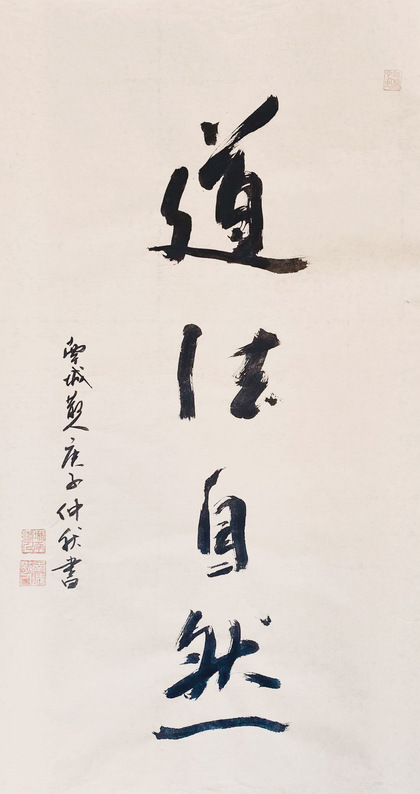 道法自然
城散人庚子仲秋書